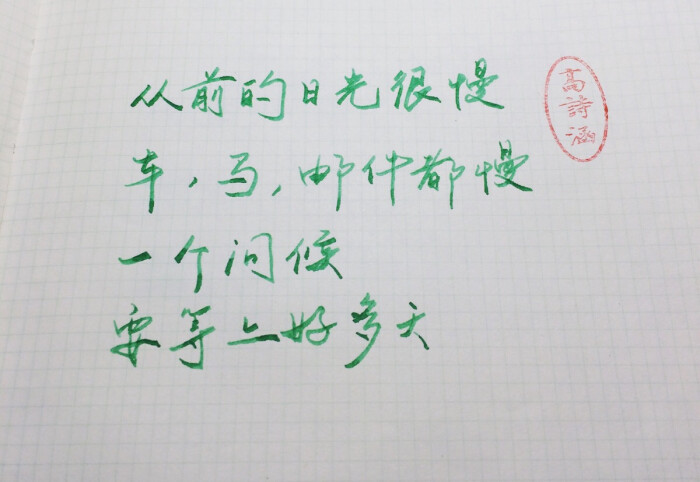 从前的日光很慢
车,马,邮件都慢
一个问候
要等上好多天
高詩涵